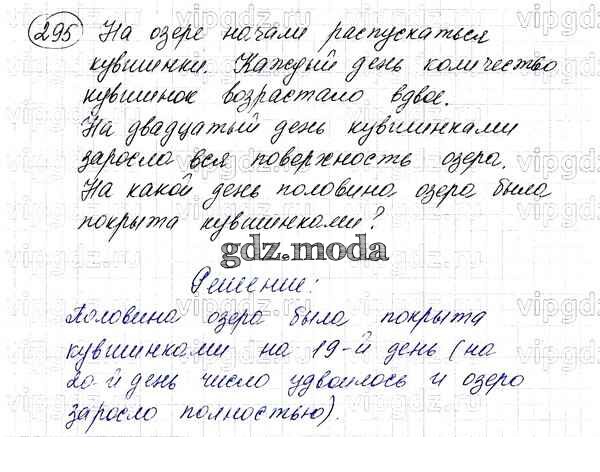 295 На озере начали распускаться
кувшинки. Каждый день количество
кувшинок возрастало вдвое.
На двадцатый день кувшинками
заросла вся поверхность озера.
На какой день половина озера была
покрыта кувшинками?
gdz.moda
Решение:
Половина озера была покрыта
кувшинками на 19-й день (на
20-й день число удвоилось и озеро
заросло полностью).